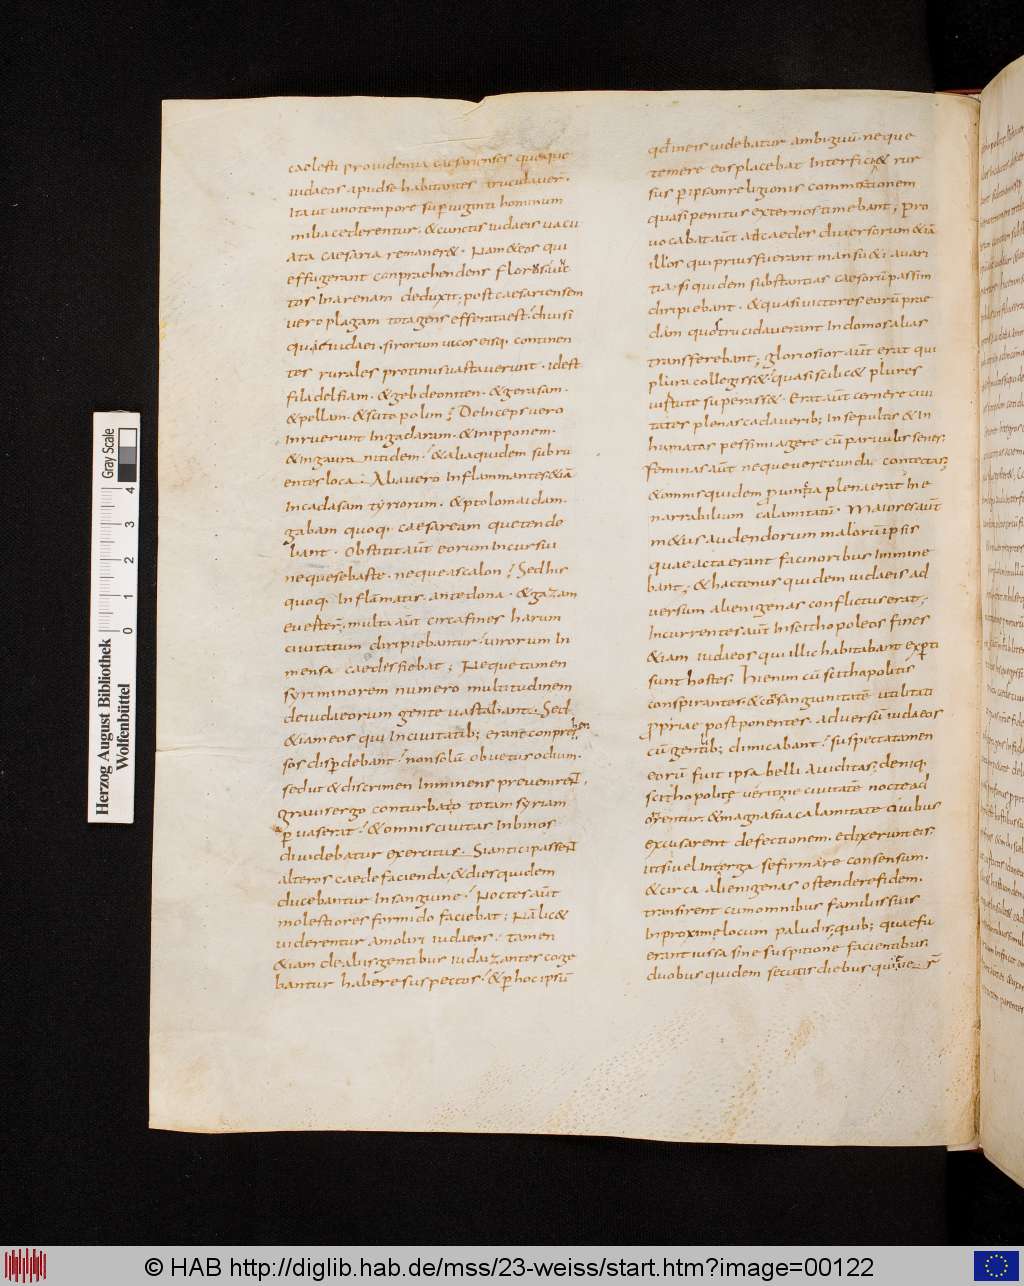 caelesti providentia caesarienses quoque
iudaeos apud se habitantes trucidauer̄.
Ita ut uno tempore sup̱ uiginti hominum
milia cederentur. & cunctis iudaeis uacu
ata caesaria remaner&. Nam & eos qui
effugerant conpraehendens florus
tos In arenam deduxit; post caesariensem
uero plagam tota gens efferata est. diuisi
quae iudaei. sirorum uicos eisq. continen
tes rurales protinus uastauerunt. idest
filadelfiam. & gebdeoniten. & gerasam.
& pellam. & scitopolim; Deinceps uero
Inruerunt In gadaram. & In ipponem.
& In gaura nitidem. & alia quidem subru
entes loca. Alia uero Inflammantes & iā
In cadasam tyriorum. & ptolomaidam.
gabam quoq. caesaream que tende
bant. Obstitit aūt eorum Incursui
neque sebaste. neque ascalon; Sed his
quoq. Inflāmatis. antedona. & gazam
multa aūt circa fines harum
ciuitatum diripiebantur. uirorum In
mensa caedes fiebat; Neque tamen
syri minorem numero multitudinem
de iudaeorum gente uastabant. Sed
& iam eos qui In ciuitatib; erant conprehen
sos disp̱debant. non solū ob uetus odium.
sed ut & discrimen Imminens preuenirēt;
grauis ergo conturbatio totam syriam
p̱uaserat. & omnis ciuitas In binos
diuidebatur exercitus. Si anticipassent
alteros caede facienda; & dies quidem
ducebantur In sanguine. Noctes aūt
molestiores formido faciebat; Nā lic&
uiderentur amoliri iudaeos. tamen
& iam de aliis gentibus iudaizantes coge
bantur habere suspectos. & p̱ hoc ipsū
qd In eis uidebatur ambiguū neque
temere eos placebat Interfici & rur
sus p̱ ipsam religionis commixtionem
quasi penitus externos timebant; Pro
uocabat aūt ad caedes diuersorum & iā
illos qui prius fuerant mansu&i. auari
tia. si quidem substantias caesorū passim
diripiebant. & quasi uictores eorū prae
dam quos trucidauerant In domos alias
transferebant; gloriosior aūt erat qui
plura collegiss& quasi scilic& plures
uirtute superass&. Erat aūt cernere ciui
tates plenas cadauerib; Insepultis & In
humatos pessimi agere cū paruulis senes.
feminas aūt neque uerecunda contectas;
& omnis quidem p̱uintia plena erat Ine
narrabilium calamitatū. Maiores aūt
m&us audendorum malorū ipsis
quae acta erant facinoribus Immine
bant; & hactenus quidem iudaeis ad
uersum alienigenas conflictus erat;
Incurrentes aūt In scithopoleos fines
& iam iudaeos qui illic habitabant exp̱ti
sunt hostes. Hi enim cū scithapolitis
conspirantes. & consanguinitatē utilitati
propriae postponentes. aduersū iudaeos
cū gentib; dimicabant. suspecta tamen
eorū fuit ipsa belli auiditas; deniq.
scithopolitę ueriti ne ciuitatē nocte ad
orirentur. & magna sua calamitate ciuibus
excusarent defectionem. edixerunt eis.
ut si uelint erga se firmare consensum.
& circa alienigenas ostendere fidem.
transirent cum omnibus familiis suis
In proximę locum paludis. quib; quae fu
erant iussa sine suspitione facientibus.
duobus quidem secutis diebus
Herzog August Bibliothek
Wolfenbüttel
Gray Scale
0 1 2 3 4
© HAB http://diglib.hab.de/mss/23-weiss/start.htm?image=00122